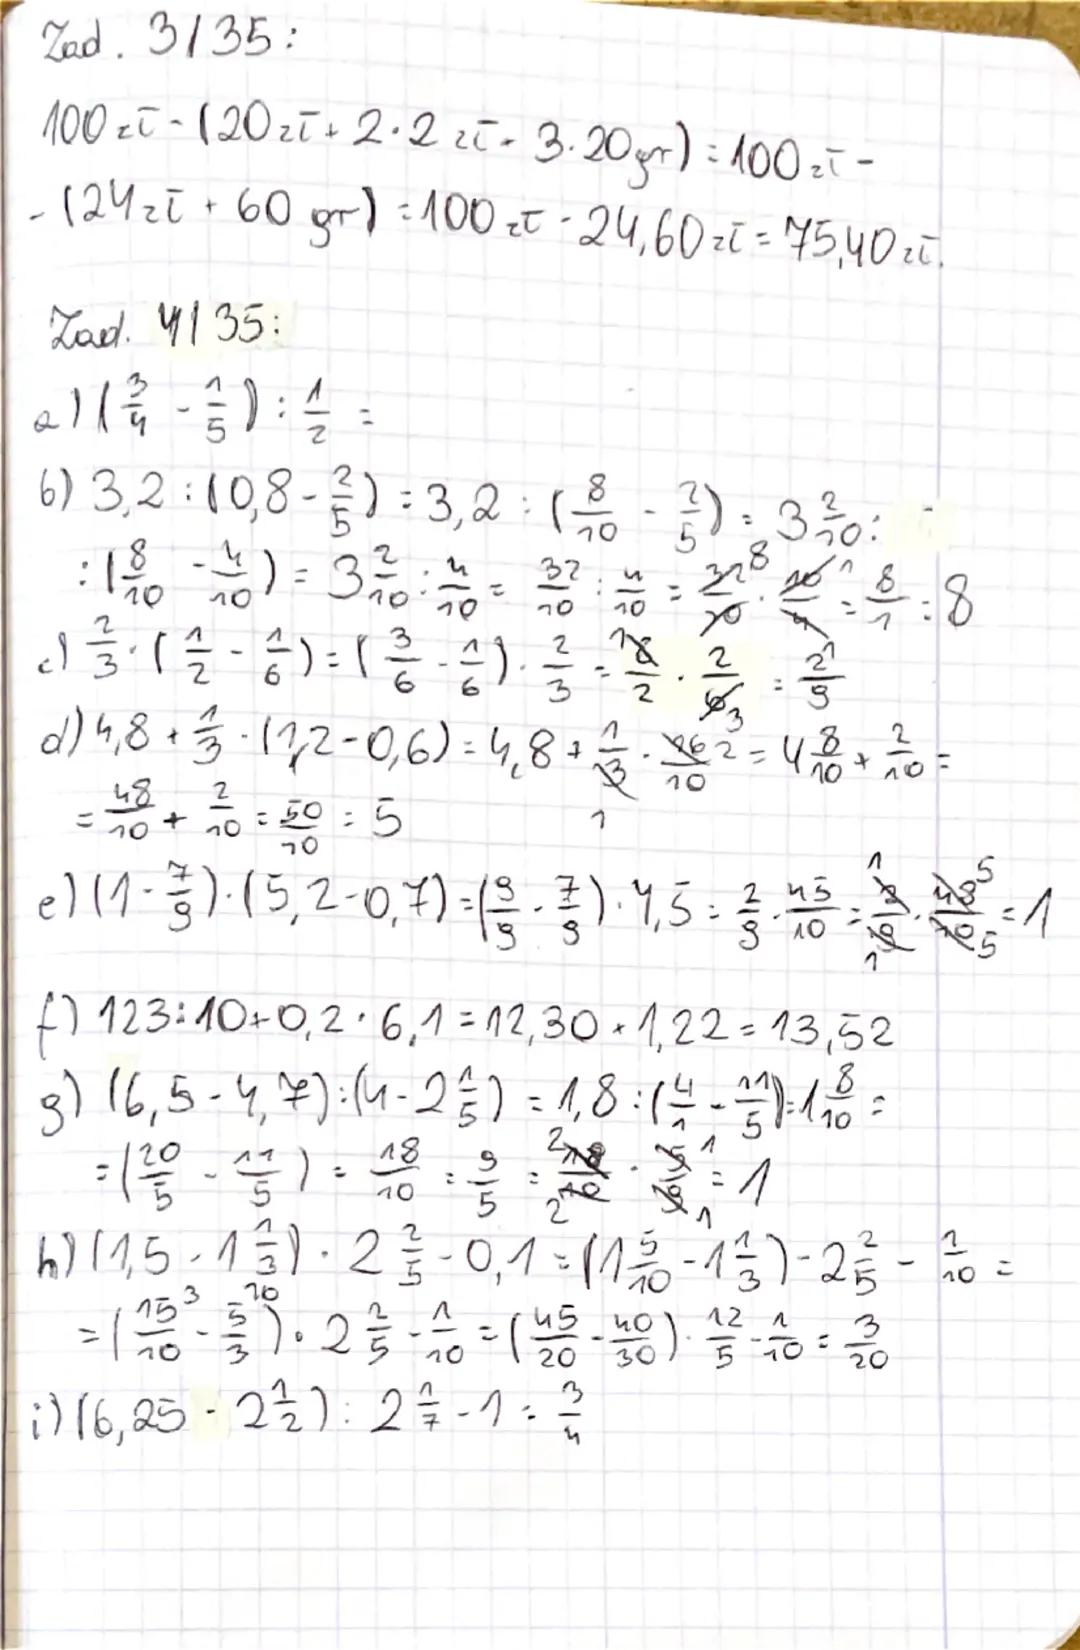 Zad. 3/35:
100 zł - (20 zł + 2·2 zł - 3·20gr) = 100 zł -
- (24 zł + 60 gr) = 100 zł - 24,60 zł = 75,40 zł.
Zad. 4/35:
a) (3/4 - 1/5) : 1/2 =
b) 3,2 : (0,8 - 2/5) = 3,2 : (8/10 - 2/5) = 3 2/10 :
: (8/10 - 4/10) = 3 2/10 : 4/10 = 32/10 : 4/10 = 32 8/10 · 10 1/4 = 8/1 = 8
c) 2/3 · (1/2 - 1/6) = (3/6 - 1/6) · 2/3 = · = 2/9
d) 4,8 + 1/3 · (1,2 - 0,6) = 4,8 + 1/3 1 · 6 2/10 = 4 8/10 + 2/10 =
= 48/10 + 2/10 = 50/10 = 5
e) (1 - 7/9) · (5,2 - 0,7) = (9/9 - 7/9) · 4,5 = 2/9 · 45/10 = · = 1
f) 123 : 10 + 0,2 · 6,1 = 12,30 + 1,22 = 13,52
g) (6,5 - 4,7) : (4 - 2 1/5) = 1,8 : (4/1 - 11/5) = 1 8/10 =
= (20/5 - 11/5) = 18/10 : 9/5 = · = 1
h) (1,5 - 1 1/3) · 2 2/5 - 0,1 = (1 5/10 - 1 1/3) - 2 2/5 - 1/10 =
= (15 3/10 - 5/3) · 2 2/5 - 1/10 = (45/20 - 40/30) · 12/5 - 1/10 = 3/20
i) (6,25 - 2 1/2) : 2 1/7 - 1 = 3/4